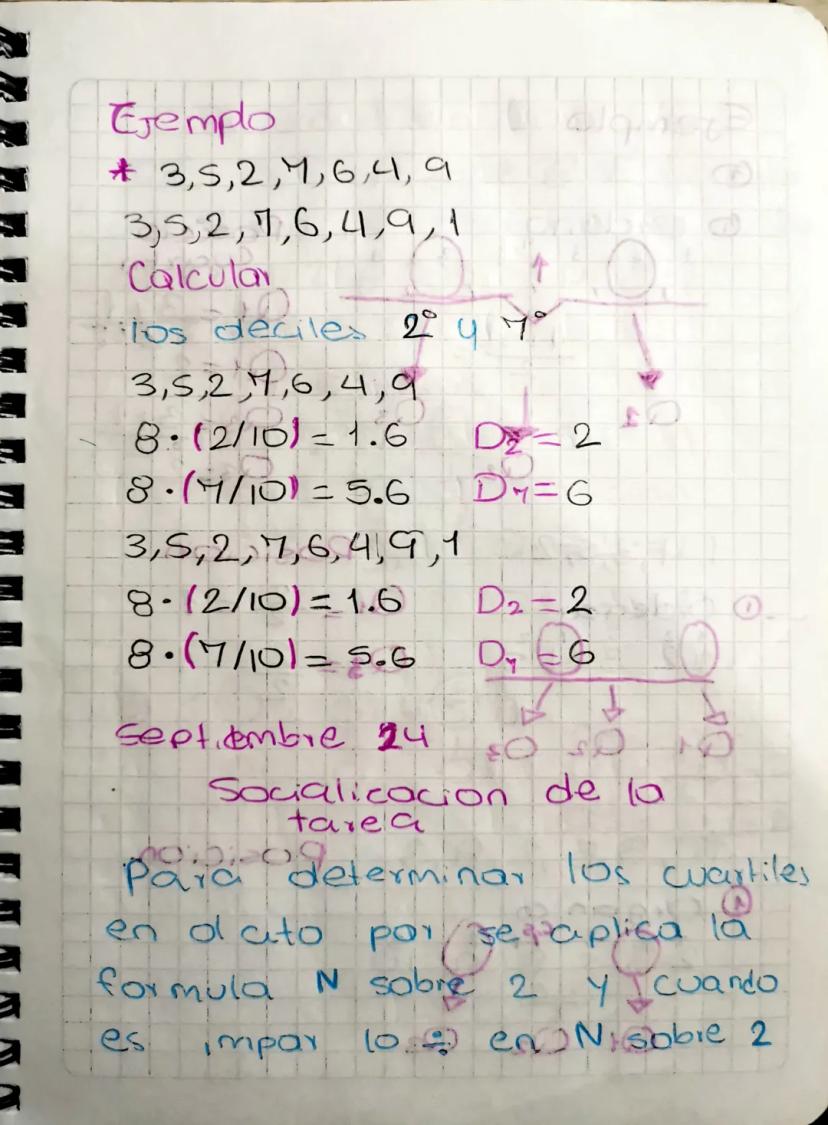 Ejemplo
* 3,5,2,7,6,4,9
3,5,2,7,6,4,9,1
Calcular
los deciles 2° y 7°
3,5,2,7,6,4,9
8·(2/10)=1.6 D2=2
8·(7/10)=5.6 D7=6
3,5,2,7,6,4,9,1
8·(2/10)=1.6 D2=2
8·(7/10)=5.6 D7=6
Septiembre 24
Socialicacion de la
tarea
Para determinar los cuartiles
en d cito par se aplica la
formula N sobre 2 y cuando
es impar lo ÷ en N sobre 2